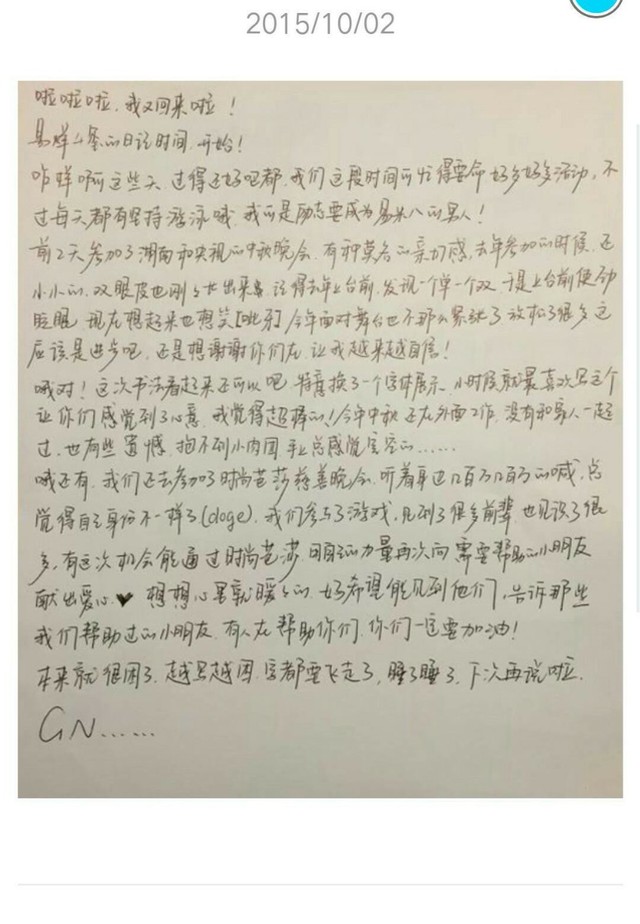 2015/10/02
啦啦啦,我又回来啦!
易烊4条的日记时间,开始!
咋样啊这些天,过得还好吧都,我们这段时间可忙得要命好多好多活动,不
过每天都有坚持游泳哦,我可是励志要成为易米八的男人!
前2天参加了湖南和央视的中秋晚会,有种莫名的亲切感,去年参加的时候,还
小小的,双眼皮也刚出来,记得去年上台前,发现一个单一个双,于是上台前使劲
眨眼,现在想起来也想笑[呲牙]今年面对舞台也不那么紧张了放松了很多这
应该是进步吧,还是想谢谢你们在,让我越来越自信!
哦对!这次书法看起来还可以吧,特意换了一个字体展示,小时候就最喜欢写这个
让你们感觉到了心意,我觉得超棒的!今年中秋还在外面工作,没有和家人一起
过,也有些遗憾,抱不到小肉团手上总感觉空空的……
哦还有,我们还去参加了时尚芭莎慈善晚会,听着耳边几百万几百万的喊,总
觉得自己身份不一样了(doge),我们参与了游戏,见到了很多前辈也见识了很
多,有这次机会能通过时尚芭莎,明星的力量再次向需要帮助的小朋友
献出爱心♥想想心里就暖暖的,好希望能见到他们,告诉那些
我们帮助过的小朋友,有人在帮助你们,你们一定要加油!
本来就很困了,越写越困,字都要飞走了,睡了睡了,下次再说啦.
GN……